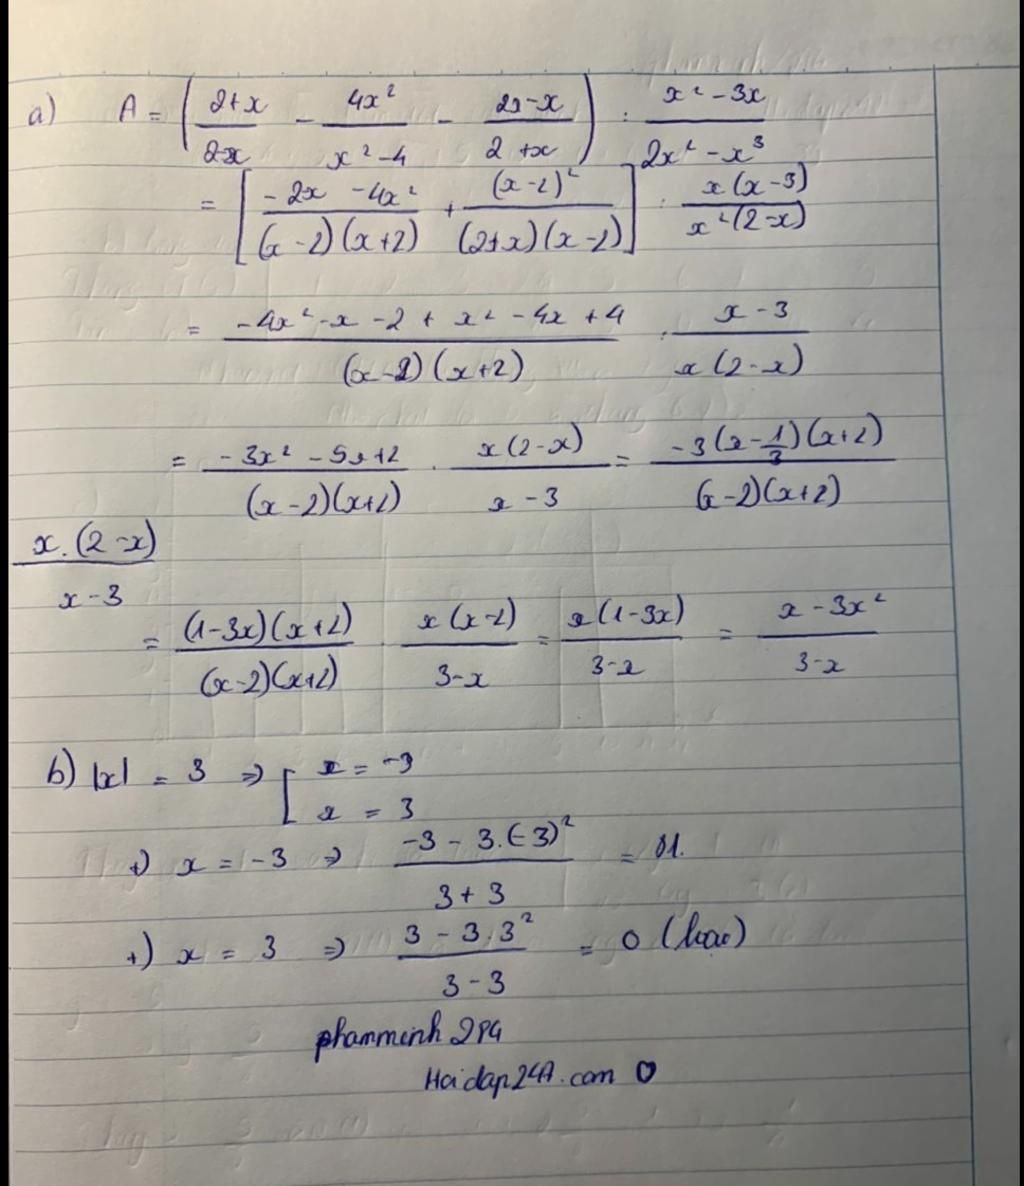 a) A = ( (2+x)/(2-x) - 4x²/(x²-4) - (2-x)/(2+x) ) : (x²-3x)/(2x²-x³)
= [ (-2x -4x²)/((x-2)(x+2)) + (x-2)²/((2+x)(x-2)) ] : x(x-3)/(x²(2-x))
= (-4x²-x-2+x²-4x+4)/((x-2)(x+2)) : (x-3)/(x(2-x))
= (-3x²-5x+2)/((x-2)(x+2)) . x(2-x)/(x-3) = -3(x-1/3)(x+2)/((x-2)(x+2))
x.(2-x)/(x-3)
= (1-3x)(x+2)/((x-2)(x+2)) . x(x-2)/(3-x) = x(1-3x)/(3-x) = (x-3x²)/(3-x)
b) |x| = 3 => [ x = -3
x = 3
+) x = -3 => (-3-3.(-3)²)/(3+3) =
+) x = 3 => (3-3.3²)/(3-3) = 0 (loại)
phamminh2PG
Hoidap247.com